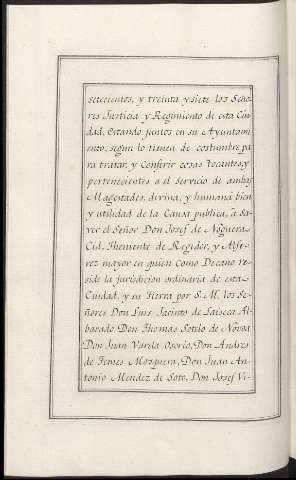 setecientos, y treinta y siete los Seño-
res Justicia y Regimiento de esta Ciu-
dad, Estando juntos en su Ayuntami-
ento, segun lo tienen de costumbre pa-
ra tratar, y Conferir cosas tocantes, y
pertenecientes a el Servicio de ambas
Magestades, divina, y humana bien
y utilidad de la Causa publica, â Sa-
ver el Señor Don Josef de Noguera
Cid, Theniente de Regidor, y Alfe-
rez mayor en quien Como Decano re-
side la jurisdicion ordinaria de esta
Ciudad, y su tierra por S. M. los Se-
ñores Don Luis Jacinto de Laiseca Al-
barado, Don Thomas Sotelo de Nóvoa
Don Juan Varela Osorio, Don Andres
de Temes Mosquera, Don Juan An-
tonio Mendez de Soto, Don Josef Vi-